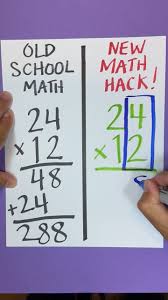 OLD
SCHOOL
MATH
24
x 12
48
+24
288
NEW
MATH
HACK!
24
x12
8